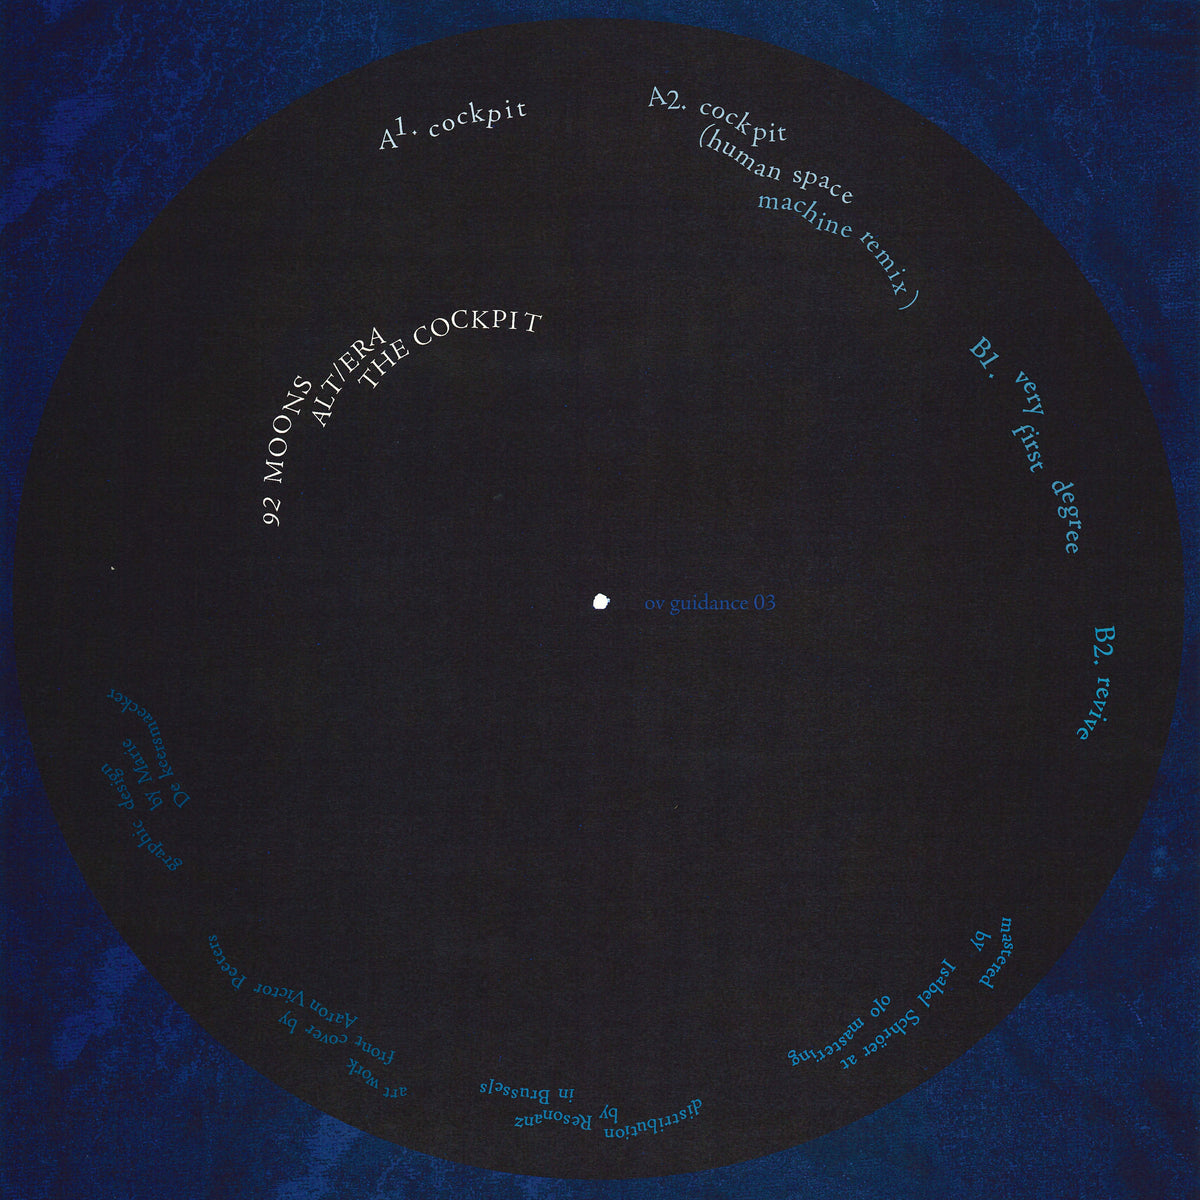 A1. cockpit
A2. cockpit
(human space
machine remix)
92 MOONS
ALT/ERA
THE COCKPIT
B1. very
first degree
ov guidance 03
B2. revive
mastered
by
Isabel Schröer at
olo mastering
distribution by
by Resonanz
in Brussels
art work
front cover by
Aaron Victor Peeters
graphic design
by Marie
De keersmaecker